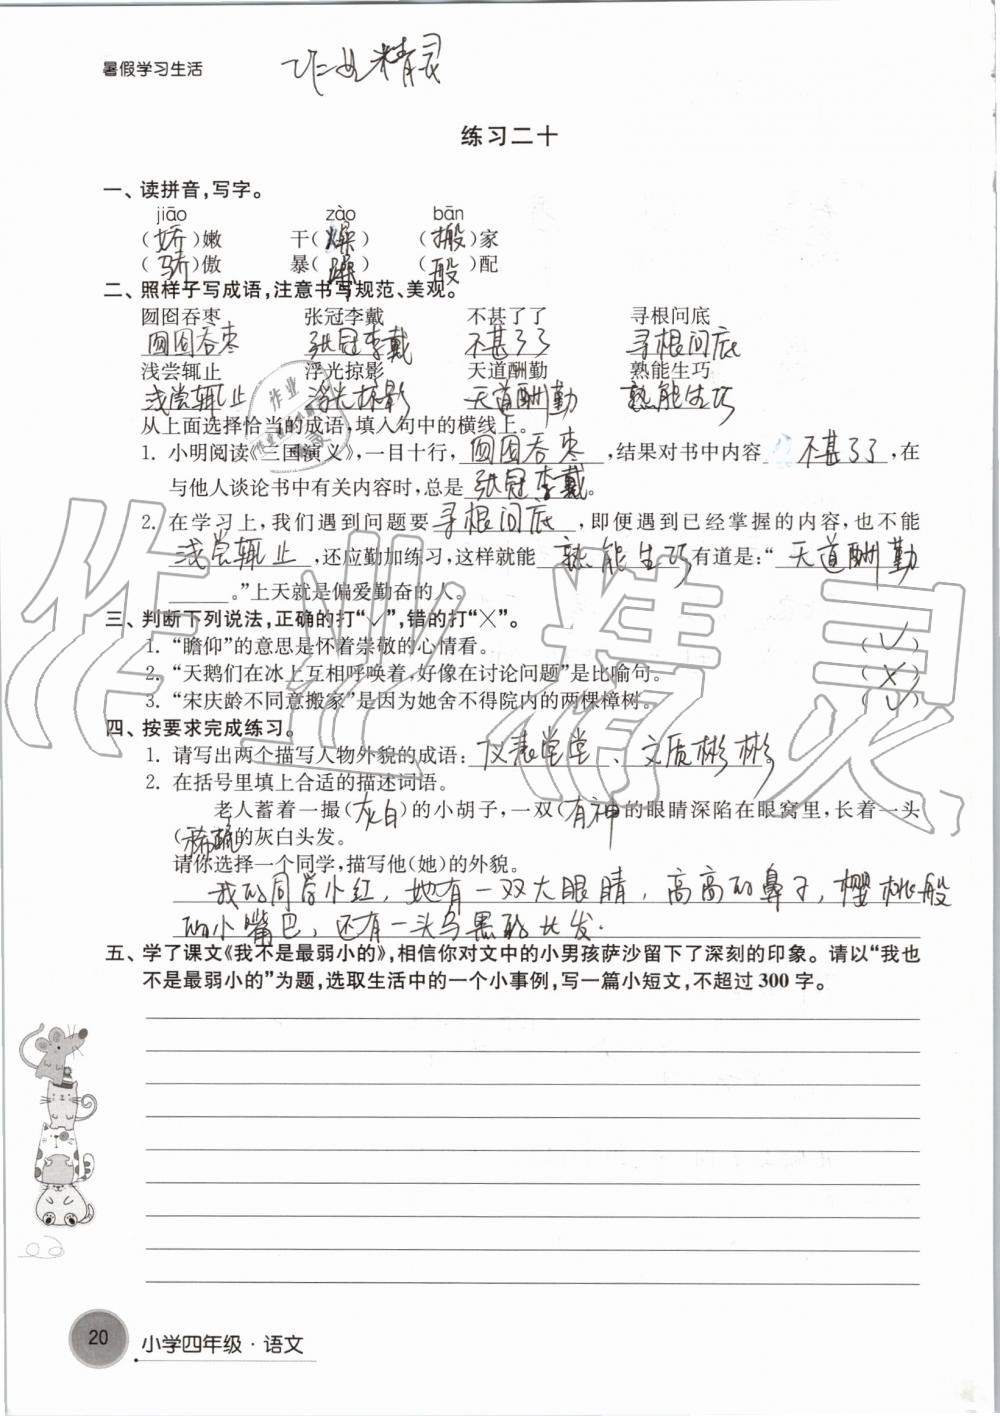 暑假学习生活
作业精灵
练习二十
一、读拼音,写字。
jiāo zào bān
(娇)嫩 干(燥) (搬)家
(骄)傲 暴(躁) (般)配
二、照样子写成语,注意书写规范、美观。
囫囵吞枣 张冠李戴 不甚了了 寻根问底
囫囵吞枣 张冠李戴 不甚了了 寻根问底
浅尝辄止 浮光掠影 天道酬勤 熟能生巧
浅尝辄止 浮光掠影 天道酬勤 熟能生巧
从上面选择恰当的成语,填入句中的横线上。
1. 小明阅读《三国演义》,一目十行,囫囵吞枣,结果对书中内容不甚了了,在
与他人谈论书中有关内容时,总是张冠李戴。
2. 在学习上,我们遇到问题要寻根问底,即便遇到已经掌握的内容,也不能
浅尝辄止,还应勤加练习,这样就能熟能生巧有道是:“天道酬勤
”上天就是偏爱勤奋的人。
三、判断下列说法,正确的打“√”,错的打“×”。
1. “瞻仰”的意思是怀着崇敬的心情看。 (√)
2. “天鹅们在冰上互相呼唤着,好像在讨论问题”是比喻句。 (×)
3. “宋庆龄不同意搬家”是因为她舍不得院内的两棵樟树。 (√)
四、按要求完成练习。
1. 请写出两个描写人物外貌的成语:仪表堂堂、文质彬彬。
2. 在括号里填上合适的描述词语。
老人蓄着一撮(灰白)的小胡子,一双(有神)的眼睛深陷在眼窝里,长着一头
(稀疏)的灰白头发。
请你选择一个同学,描写他(她)的外貌。
我的同学小红,她有一双大眼睛,高高的鼻子,樱桃般
的小嘴巴,还有一头乌黑的比发.
五、学了课文《我不是最弱小的》,相信你对文中的小男孩萨沙留下了深刻的印象。请以“我也
不是最弱小的”为题,选取生活中的一个小事例,写一篇小短文,不超过 300 字。
20 小学四年级·语文
作业精灵